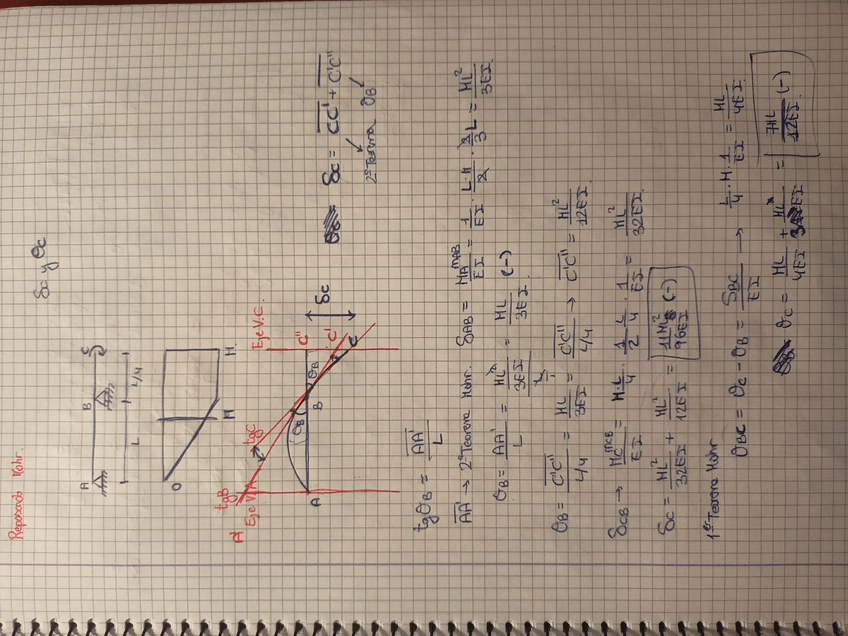 Repasando Mohr.
δc y θc
A B C
L L/4
O M M.
tgB tgC
Eje V.A Eje V.C.
A' C''
θB θB C' δc
A B C
δc = CC' + C'C''
2º Teorema θB
tgθB = AA'/L
AA' → 2º Teorema Mohr. δAB = MA^MAB/EI = 1/EI · L·M/2 · 2/3 L = ML²/3EI
θB = AA'/L = ML²/3EI/L = ML/3EI (-)
θB = C'C''/L/4 = ML/3EI = C'C''/L/4 → C'C'' = ML²/12EI
δCB → MC^MCB/EI = M·L/4 · 1/2 · L/4 · 1/EI = ML²/32EI.
δc = ML²/32EI + ML²/12EI = 11ML²/96EI (-)
1er Teorema Mohr
θBC = θc - θB = SBC/EI → L/4 · M · 1/EI = ML/4EI.
θc = ML/4EI + ML/3EI = 7ML/12EI (-)